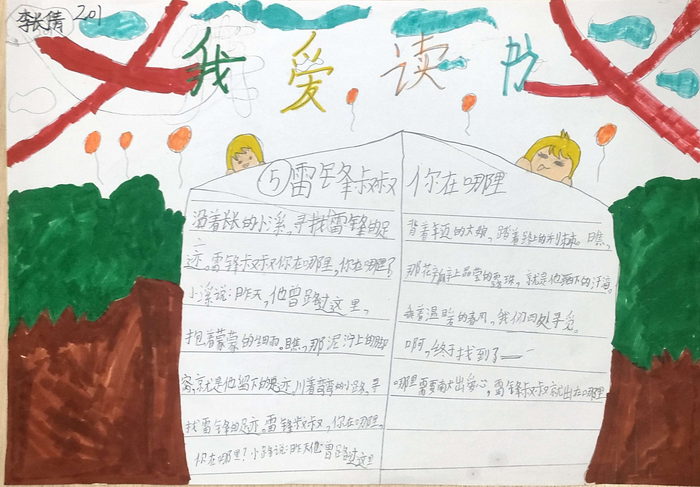 李长倩 201
我爱读书
⑤雷锋叔叔 你在哪里
沿着长长的小溪，寻找雷锋的足
迹。雷锋叔叔你在哪里，你在哪里？
小溪说：昨天，他曾路过这里，
抱着蒙蒙的细雨。瞧，那泥泞上的脚
窝，就是他留下的足迹，川着弯弯的小路，寻
找雷锋的足迹。雷锋叔叔，你在哪里，
你在哪里？小路说：昨天他曾路过这里
背着年迈的大娘，踏着路上的荆棘。瞧，
那花瓣上晶莹的露珠，就是他洒下的汗滴。
乘着温暖的春风，我们四处寻觅。
啊，终于找到了——
哪里需要献出爱心，雷锋叔叔就出在哪里